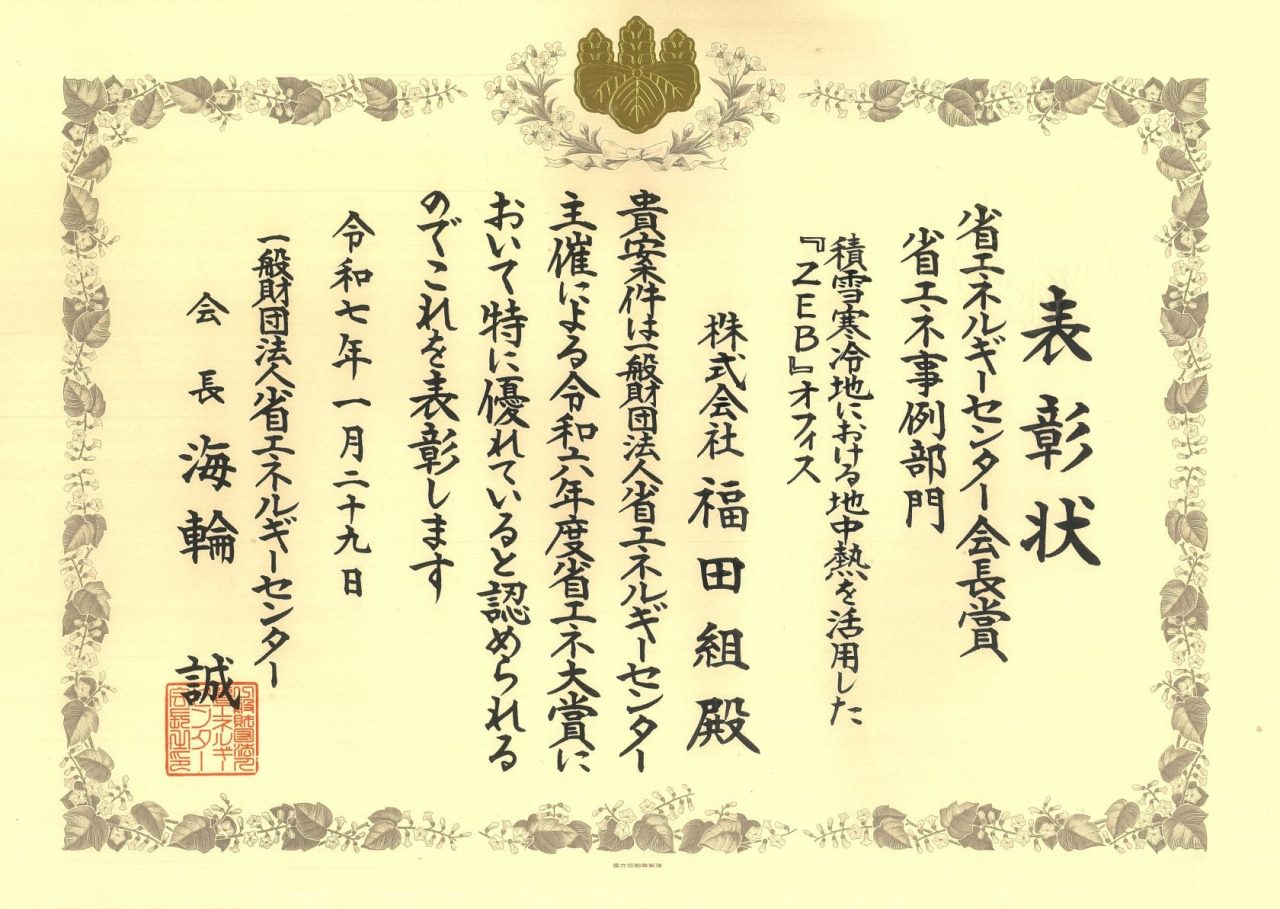 表彰状
省エネルギーセンター会長賞
省エネ事例部門
積雪寒冷地における地中熱を活用した
『ZEB』オフィス
株式会社 福田組殿
貴案件は一般財団法人省エネルギーセンター
主催による令和六年度省エネ大賞に
おいて特に優れていると認められる
のでこれを表彰します
令和七年一月二十九日
一般財団法人省エネルギーセンター
会長 海輪 誠
一般財団法人
省エネルギー
センター
会長之印